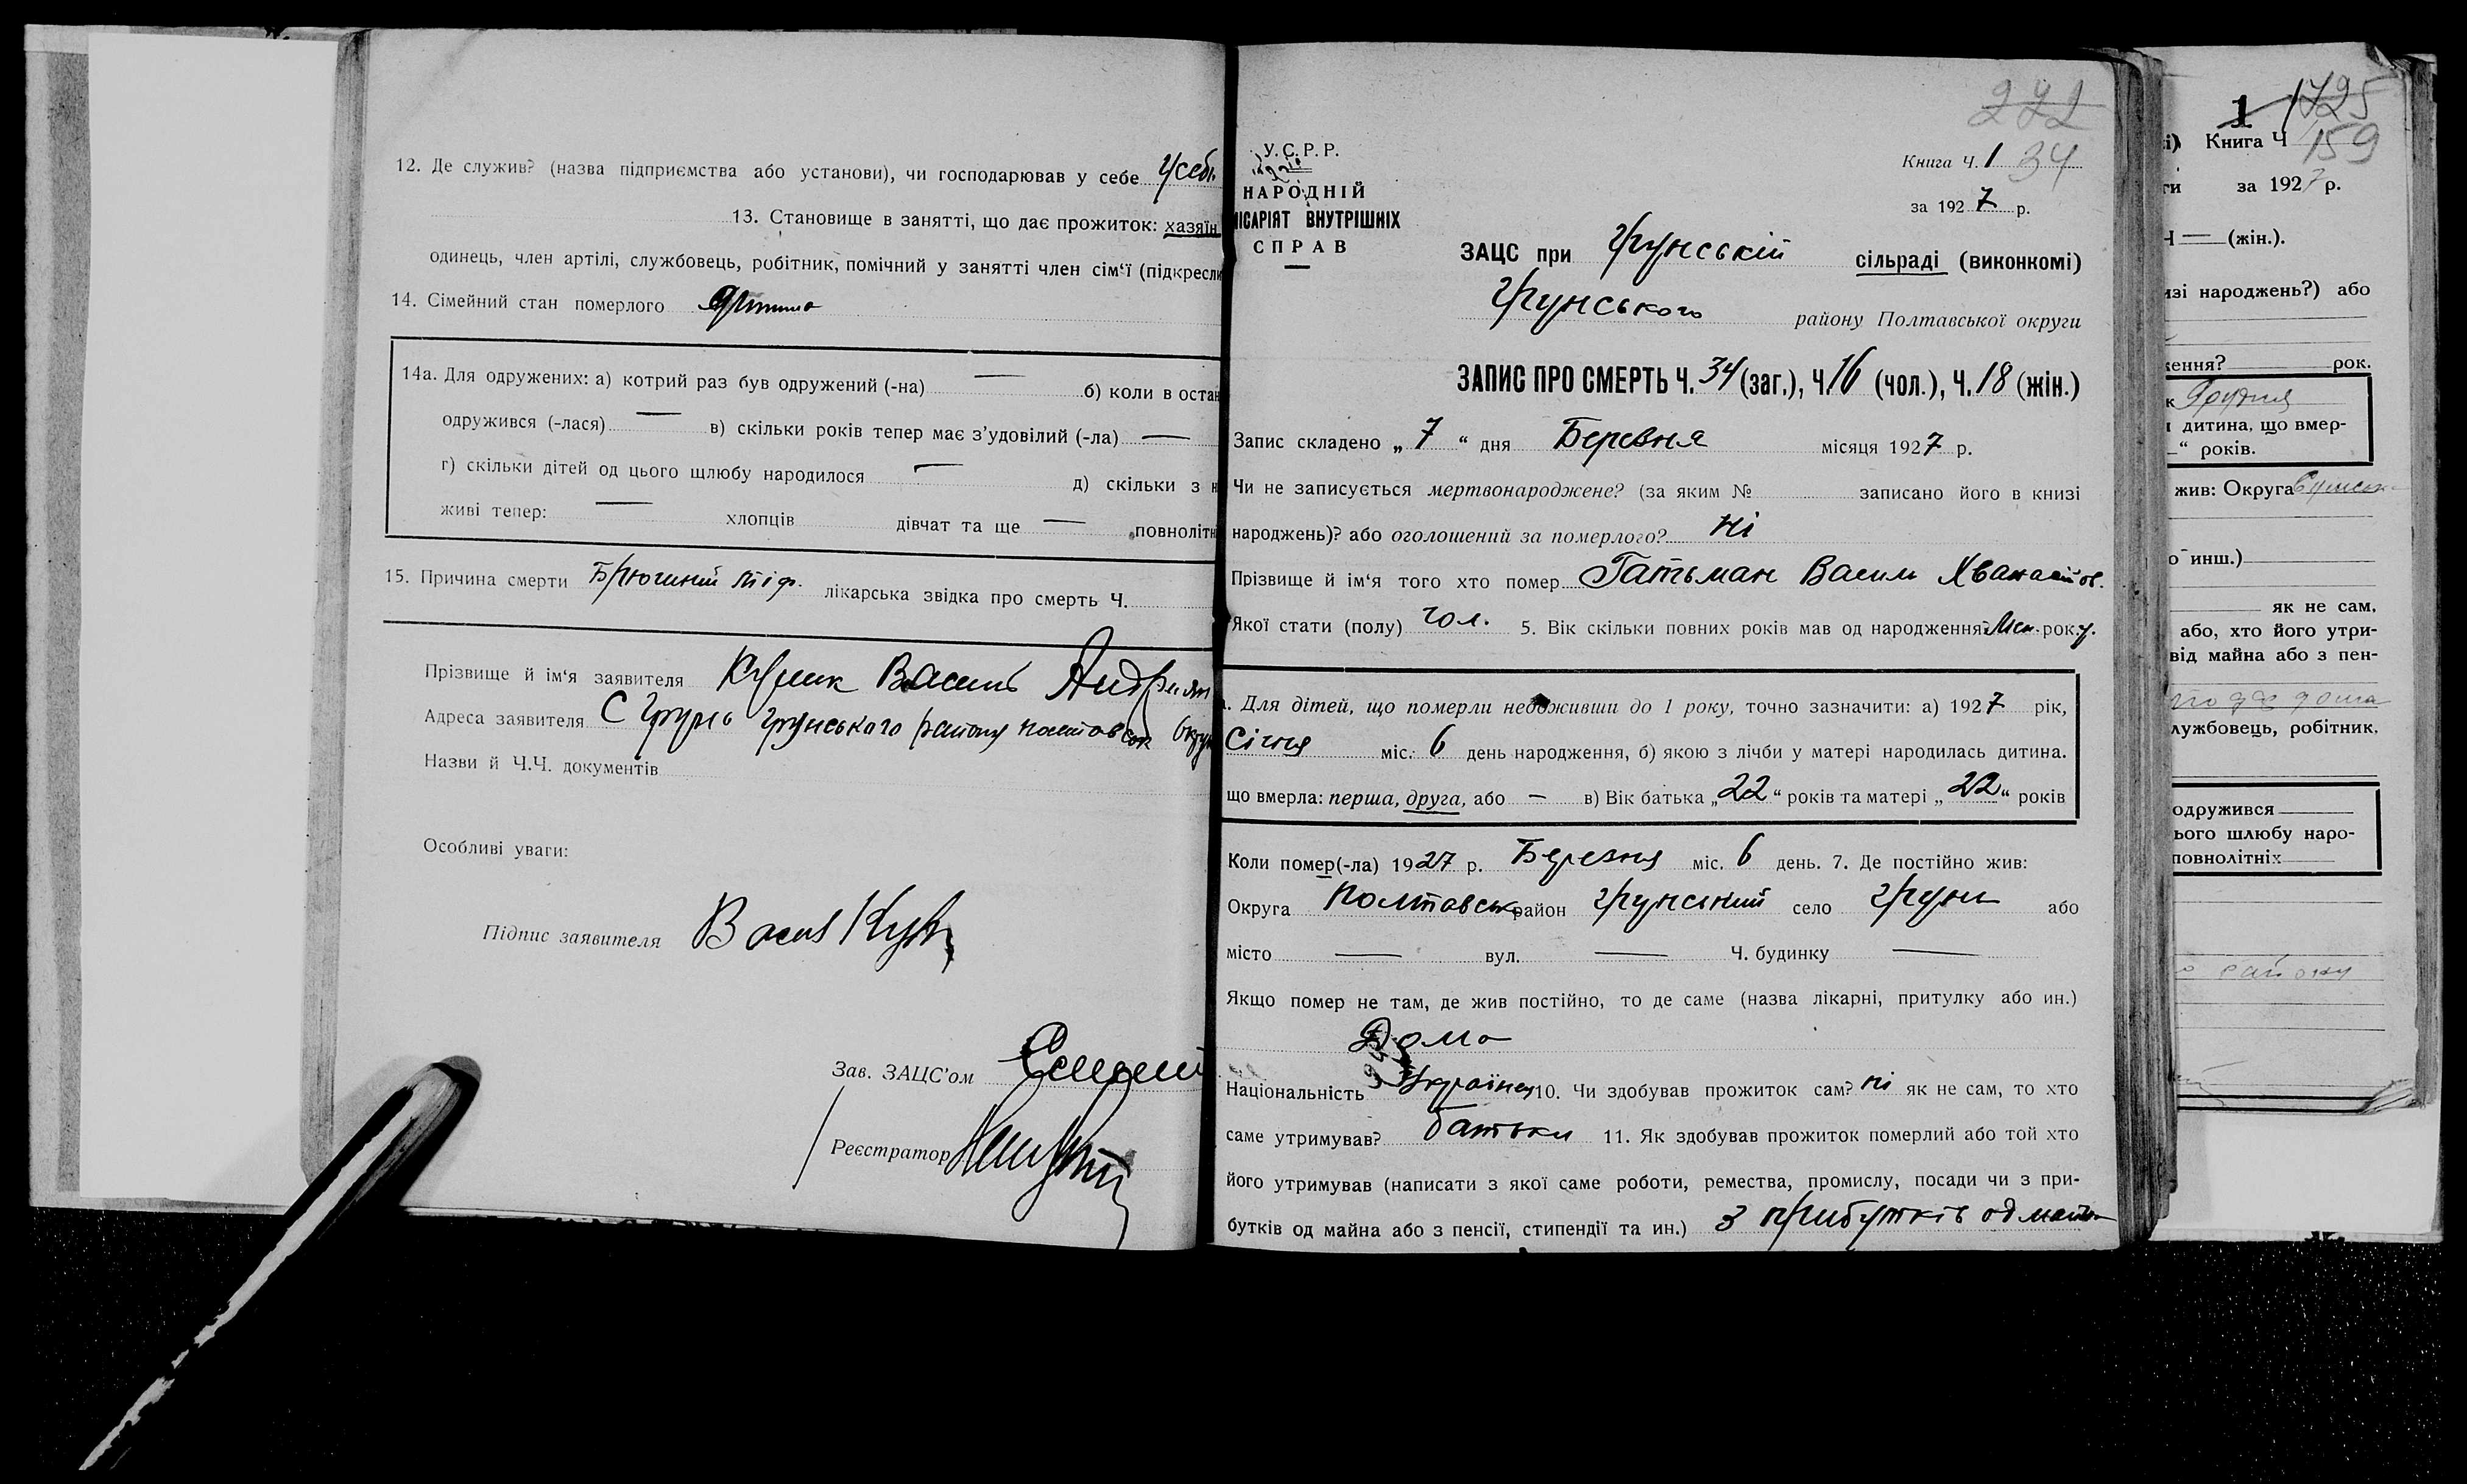 12. Де служив? (назва підприємства або установи), чи господарював у себе у себе
13. Становище в занятті, що дає прожиток: хазяїн
одинець, член артілі, службовець, робітник, помічний у занятті член сім‘ї (підкресли
14. Сімейний стан померлого
14а. Для одружених: а) котрий раз був одружений (-на) — б) коли в остан
одружився (-лася) — в) скільки років тепер має з’удовілий (-ла) —
г) скільки дітей од цього шлюбу народилося — д) скільки з н
живі тепер: — хлопців дівчат та ще — повнолітн
15. Причина смерти Брюшний тіф. лікарська звідка про смерть Ч.
Прізвище й ім‘я заявителя Василь
Адреса заявителя С Грунь Грунського району Полтавськ Округи
Назви й Ч.Ч. документів
Особливі уваги:
Підпис заявителя
Зав. ЗАЦС’ом
Реєстратор
221
У.С.Р.Р.
НАРОДНІЙ
ІСАРІЯТ ВНУТРІШНІХ
СПРАВ
Книга Ч. 1 34
за 1927 р.
ЗАЦС при Грунській сільраді (виконкомі)
Грунського району Полтавської округи
ЗАПИС ПРО СМЕРТЬ Ч. 34 (заг.), Ч. 16 (чол.), Ч. 18 (жін.)
Запис складено „ 7 “ дня Березня місяця 1927 р.
Чи не записується мертвонароджене? (за яким № записано його в книзі
народжень)? або оголошений за померлого? Ні
Прізвище й ім‘я того хто помер Гатьман Васил Хванасійов.
Якої стати (полу) чол. 5. Вік скільки повних років мав од народження? 2 міс. року.
. Для дітей, що померли недоживши до 1 року, точно зазначити: а) 1927 рік,
Січня міс. 6 день народження, б) якою з лічби у матері народилась дитина.
що вмерла: перша, друга, або — в) Вік батька „ 22 “ років та матері „ 22 “ років
Коли помер(-ла) 1927 р. Березня міс. 6 день. 7. Де постійно жив:
Округа Полтавськ район Грунський село Грунь або
місто — вул. — Ч. будинку —
Якщо помер не там, де жив постійно, то де саме (назва лікарні, притулку або ин.)
Дома
Національність Українец 10. Чи здобував прожиток сам? ні як не сам, то хто
саме утримував? батьки 11. Як здобував прожиток померлий або той хто
його утримував (написати з якої саме роботи, ремества, промислу, посади чи з при-
бутків од майна або з пенсії, стипендії та ин.) З прибутків од майна
1 1725
і) Книга Ч 159
ги за 1927 р.
Ч — (жін.).
изі народжень?) або
ження? рок.
к Грудня
дитина, що вмер-
“ років.
жив: Округа Сумськ
о инш.)
як не сам,
або, хто його утри-
від майна або з пен-
лужбовець, робітник,
одружився
ього шлюбу наро-
повнолітніх
району